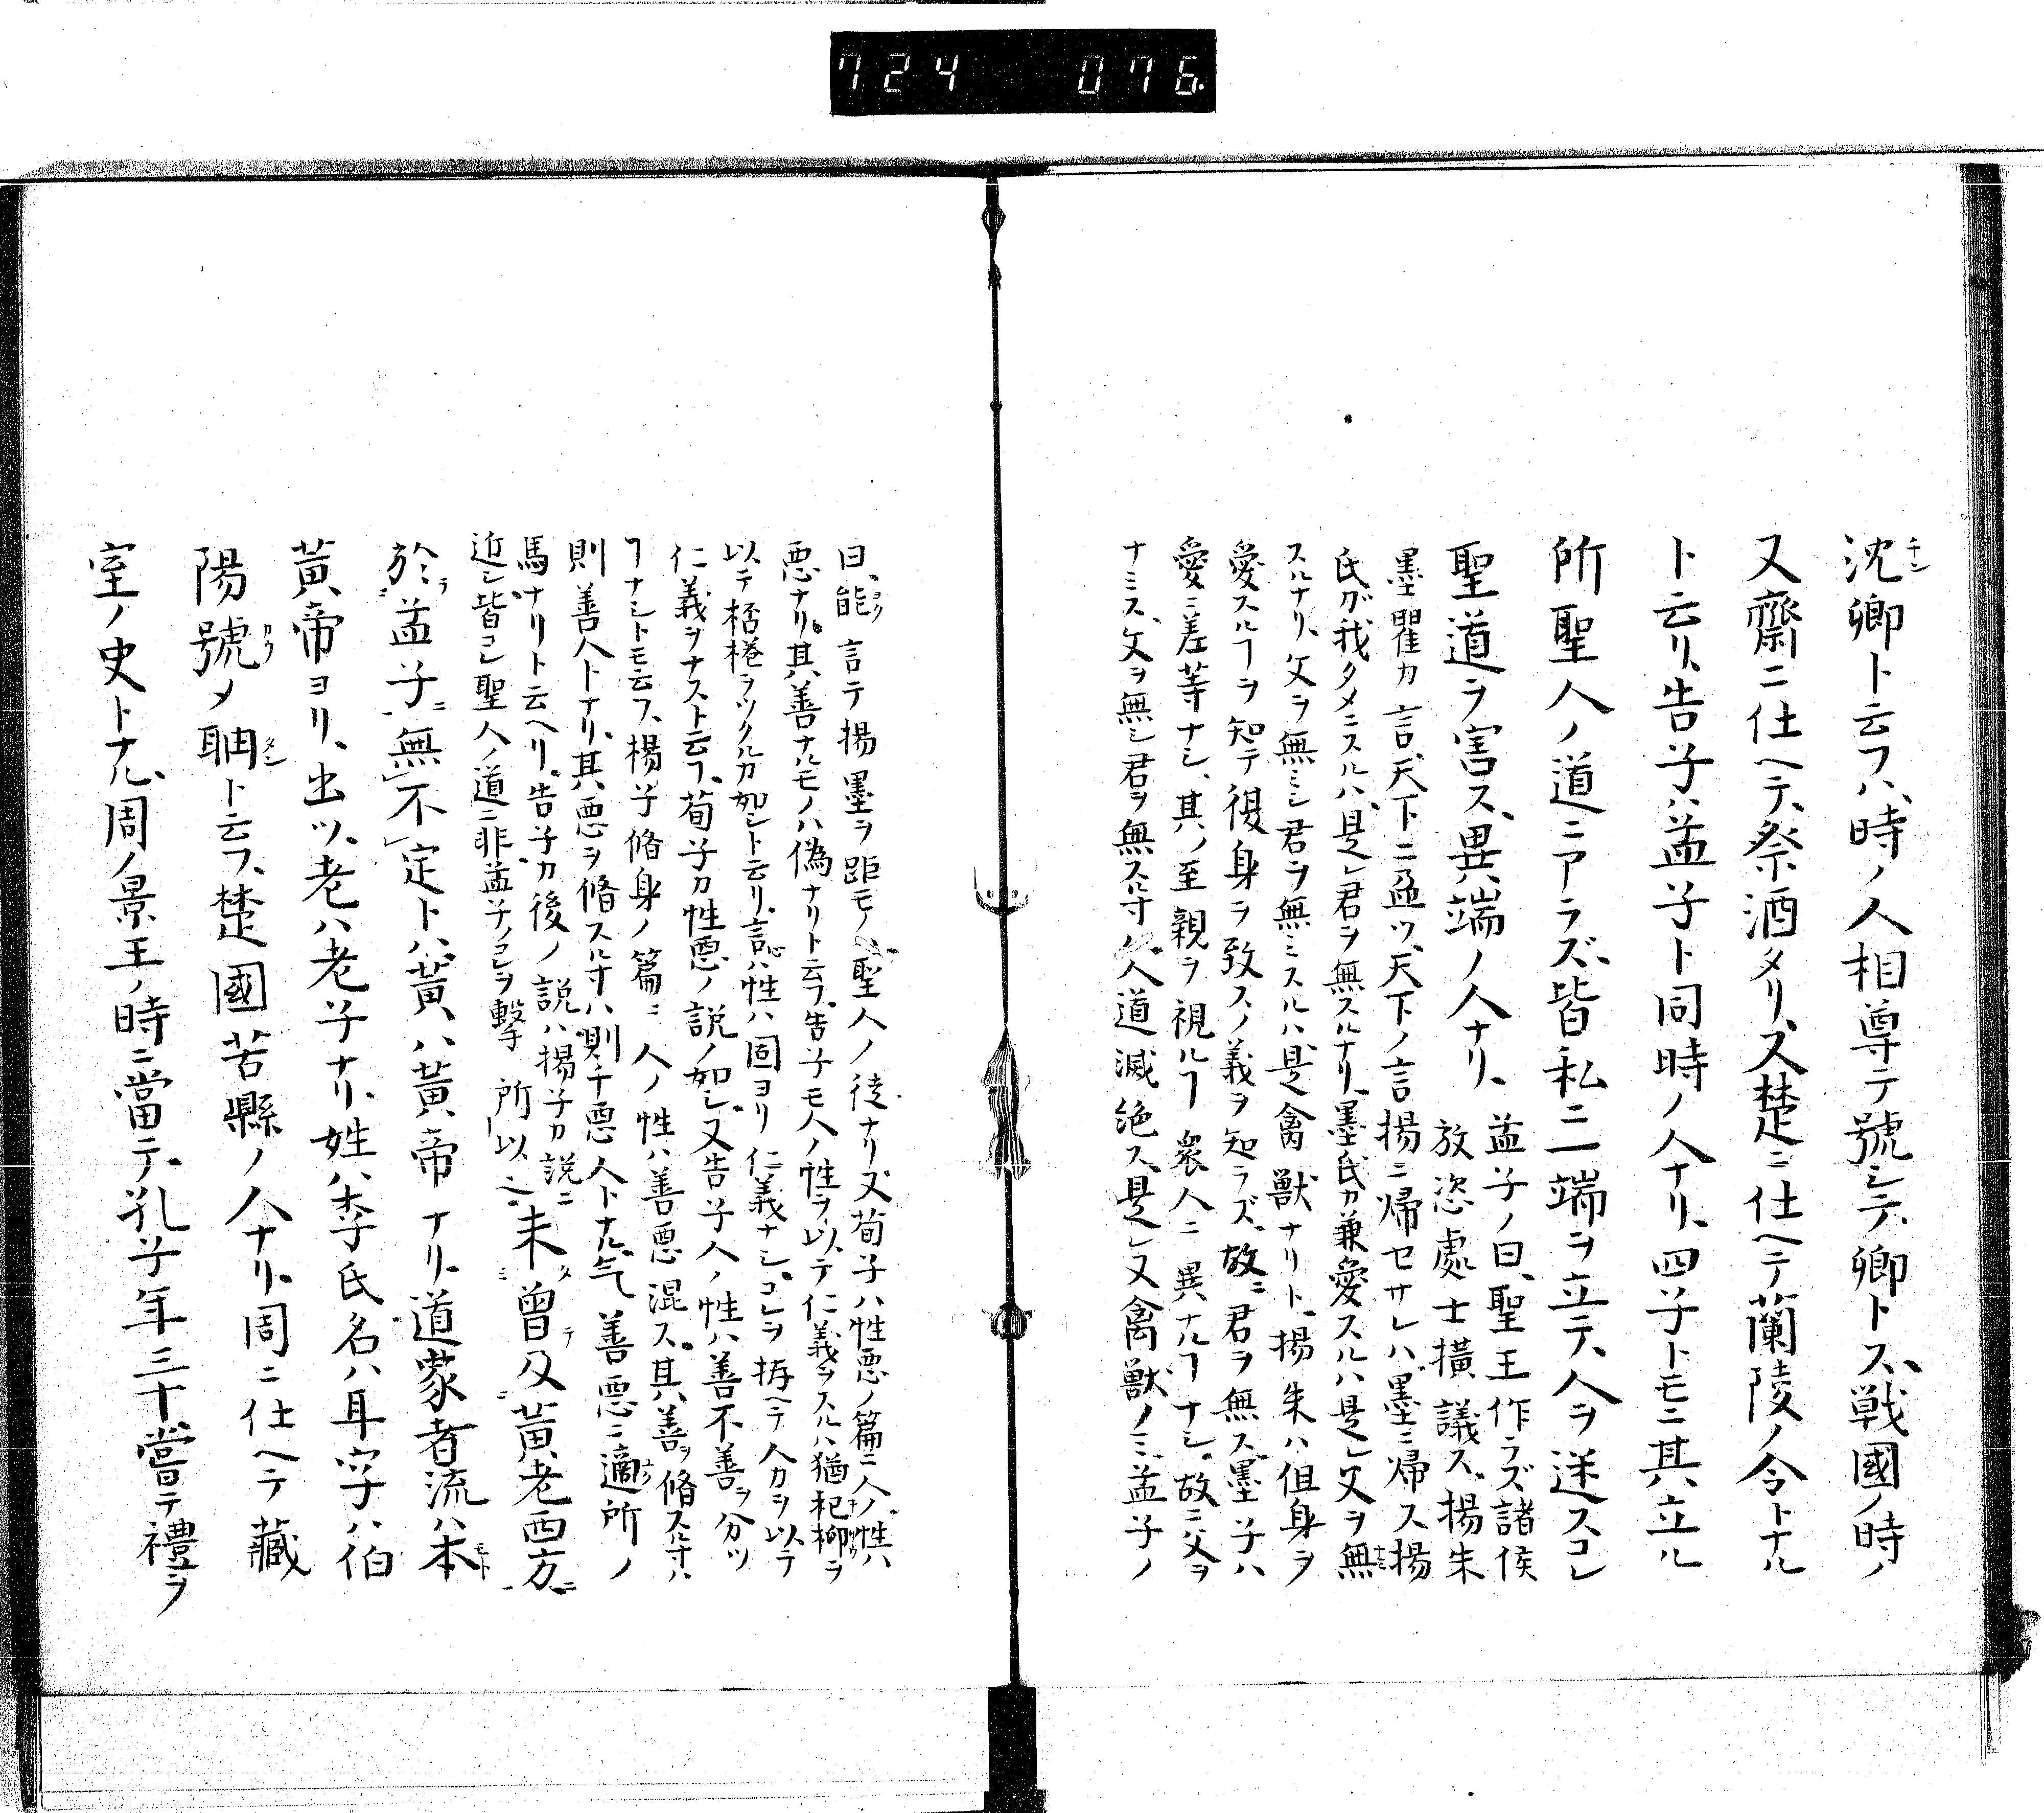 724 076
沈卿ト云フハ、時ノ人相尊テ號シテ、卿トス、戦國ノ時ノ
又齋ニ仕ヘテ、祭酒タリ、又楚ニ仕ヘテ蘭陵ノ令トナル
ト云リ、告子ハ孟子ト同時ノ人ナリ、四子トモニ其立ル
所聖人ノ道ニアラズ、皆私ニ一端ヲ立テ、人ヲ迷スコレ
聖道ヲ害ス、異端ノ人ナリ、
孟子ノ曰、聖王作ラズ諸侯
放恣處士横議ス、揚朱
墨瞿カ言、天下ニ盈ツ、天下ノ言揚ニ帰セサレハ、墨ニ帰ス、揚
氏ガ我タメニスルハ、是レ君ヲ無スルナリ、墨氏カ兼愛スルハ是レ父ヲ無
スルナリ、父ヲ無ミシ君ヲ無ミスルハ、是禽獣ナリト、揚朱ハ但身ヲ
愛スルヿヲ知テ復身ヲ致スノ義ヲ知ラズ、故ニ君ヲ無ス、墨子ハ
愛ニ差等ナシ、其ノ至親ヲ視ルヿ衆人ニ異ナルヿナシ、故ニ父ヲ
ナミス、父ヲ無シ君ヲ無スル寸ハ人道滅絶ス、是レ又禽獣ノミ、孟子ノ
曰、能言テ揚墨ヲ距モノ聖人ノ徒ナリ又荀子ハ性悪ノ篇ニ人ノ性ハ
悪ナリ、其善ナルモノハ偽ナリト云フ、告子モ人ノ性ヲ以テ仁義ヲスルハ猶杞柳ヲ
以テ桮棬ヲツクルカ如シト云リ、言ハ性ハ固ヨリ仁義ナシ、コレヲ拵ヘテ人力ヲ以テ
仁義ヲナスト云フ、荀子カ性悪ノ説ノ如シ、又告子人ノ性ハ善不善ヲ分ツ
ヿナシトモ云フ、楊子脩身ノ篇ニ人ノ性ハ善悪混ス、其善ヲ脩スル寸ハ
則善人トナリ、其悪ヲ脩スル寸ハ、則チ悪人トナル、气善悪ニ適所ノ
馬ナリト云ヘリ、告子カ後ノ説ハ揚子カ説ニ
近シ皆コレ聖人ノ道ニ非孟子ノコレヲ撃所以之未曾及黃老西方
於孟子無不定トハ、黃ハ黃帝ナリ、道家者流ハ本
黃帝ヨリ、出ツ、老ハ老子ナリ、姓ハ李氏名ハ耳字ハ伯
陽號メ耼ト云フ、楚國苦縣ノ人ナリ、周ニ仕ヘテ藏
室ノ史トナル、周ノ景王ノ時ニ當テ、孔子年三十嘗テ禮ヲ